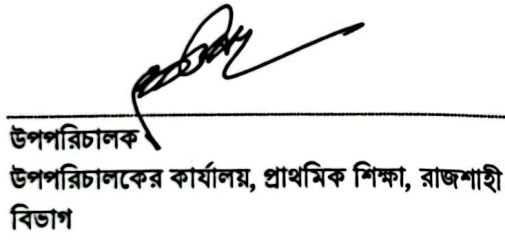 উপপরিচালক
উপপরিচালকের কার্যালয়, প্রাথমিক শিক্ষা, রাজশাহী
বিভাগ